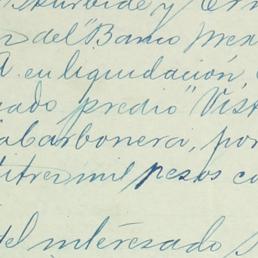 Iturbide y
del "Banco Mex
A. en liquidación,
predio "Vist
abarbonera, por
titres mil pesos co
del interesado S